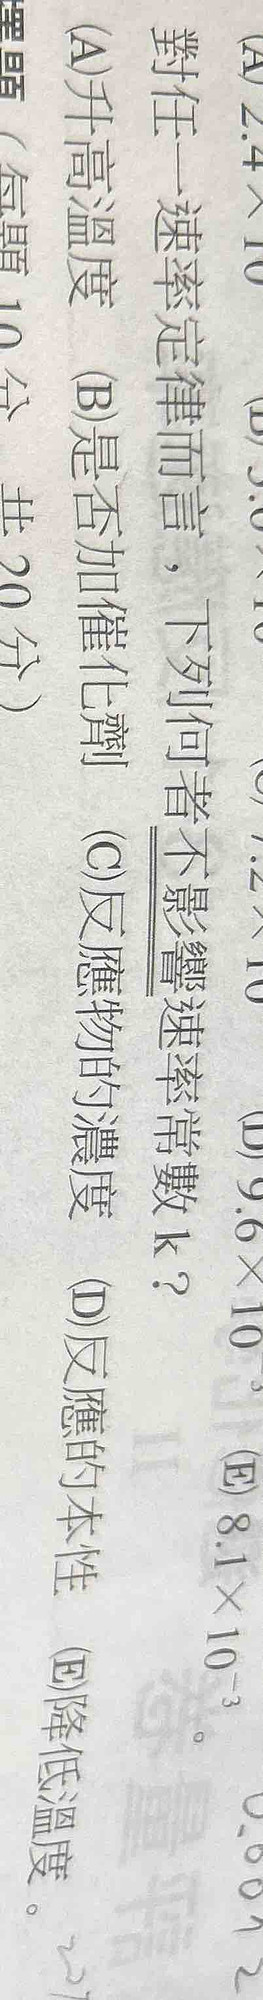 (D) 9.6×10⁻³ (E) 8.1×10⁻³。
對任一速率定律而言，下列何者不影響速率常數 k？
(A)升高溫度 (B)是否加催化劑 (C)反應物的濃度 (D)反應的本性 (E)降低溫度。
（每題 10 分 共 20 分）